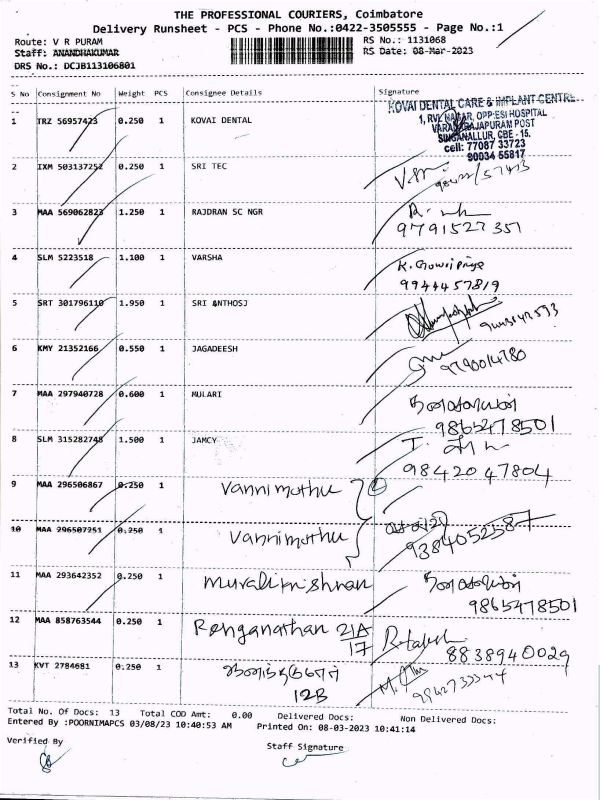 THE PROFESSIONAL COURIERS, Coimbatore
Delivery Runsheet - PCS - Phone No.:0422-3505555 - Page No.:1
Route: V R PURAM RS No.: 1131068
Staff: ANANDHAKUMAR RS Date: 08-Mar-2023
DRS No.: DCJB113106801
S No Consignment No Weight PCS Consignee Details Signature
KOVAI DENTAL CARE & IMPLANT CENTRE
1 TRZ 56957423 0.250 1 KOVAI DENTAL 1, RVL NAGAR, OPP:ESI HOSPITAL
VARADHARAJAPURAM POST
SINGANALLUR, CBE - 15.
cell: 77087 33723
90034 55817
2 IXM 503137252 0.250 1 SRI TEC
3 MAA 569062823 1.250 1 RAJDRAN SC NGR
9791527351
4 SLM 5223518 1.100 1 VARSHA K. Gowri Priya
9944457819
5 SRT 301796110 1.950 1 SRI ANTHOSJ
6 KMY 21352166 0.550 1 JAGADEESH
9790014780
7 MAA 297940728 0.600 1 MULARI
9865478501
8 SLM 315282748 1.500 1 JAMCY
9842047804
9 MAA 296506867 0.250 1 Vannimuthu
10 MAA 296507251 0.250 1 Vannimuthu
9384052587
11 MAA 293642352 0.250 1 Muralikrishnan
9865478501
12 MAA 858763544 0.250 1 Renganathan 21A/17
8838940029
13 KVT 2784681 0.250 1
12B
Total No. Of Docs: 13 Total COD Amt: 0.00 Delivered Docs: Non Delivered Docs:
Entered By :POORNIMAPCS 03/08/23 10:40:53 AM Printed On: 08-03-2023 10:41:14
Verified By Staff Signature